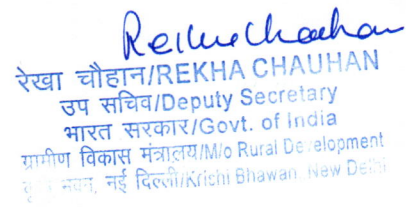 Rekha Chauhan
रेखा चौहान/REKHA CHAUHAN
उप सचिव/Deputy Secretary
भारत सरकार/Govt. of India
ग्रामीण विकास मंत्रालय/M/o Rural Development
भवन, नई दिल्ली/Krichi Bhawan, New Delhi